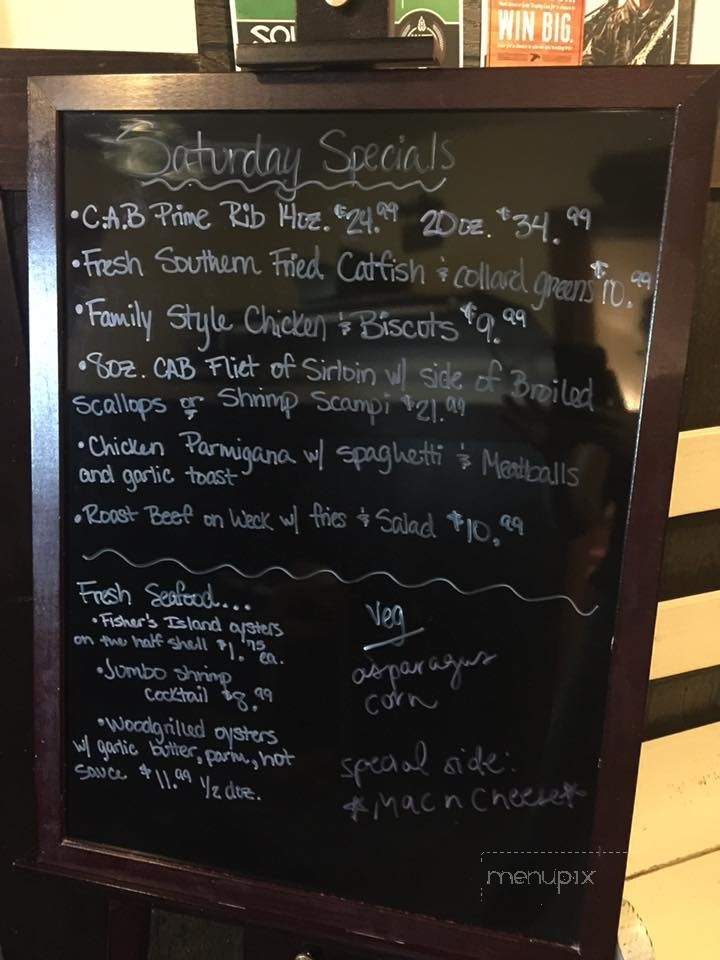 WIN BIG.
Saturday Specials
• C.A.B Prime Rib 14oz. $24.99 20oz. $34.99
• Fresh Southern Fried Catfish & collard greens $10.99
• Family Style Chicken & Biscuts $9.99
• 8oz. CAB Fliet of Sirloin w/ side of Broiled
Scallops or Shrimp Scampi $21.99
• Chicken Parmigana w/ spaghetti & Meatballs
and garlic toast
• Roast Beef on Weck w/ fries & Salad $10.99
Fresh Seafood...
• Fisher's Island oysters
on the half shell $1.75 ea.
• Jumbo shrimp
cocktail $8.99
• Woodgrilled oysters
w/ garlic butter, parm, hot
sauce $11.99 1/2 doz.
Veg
asparagus
corn
special side:
*Mac n Cheese*
menupix